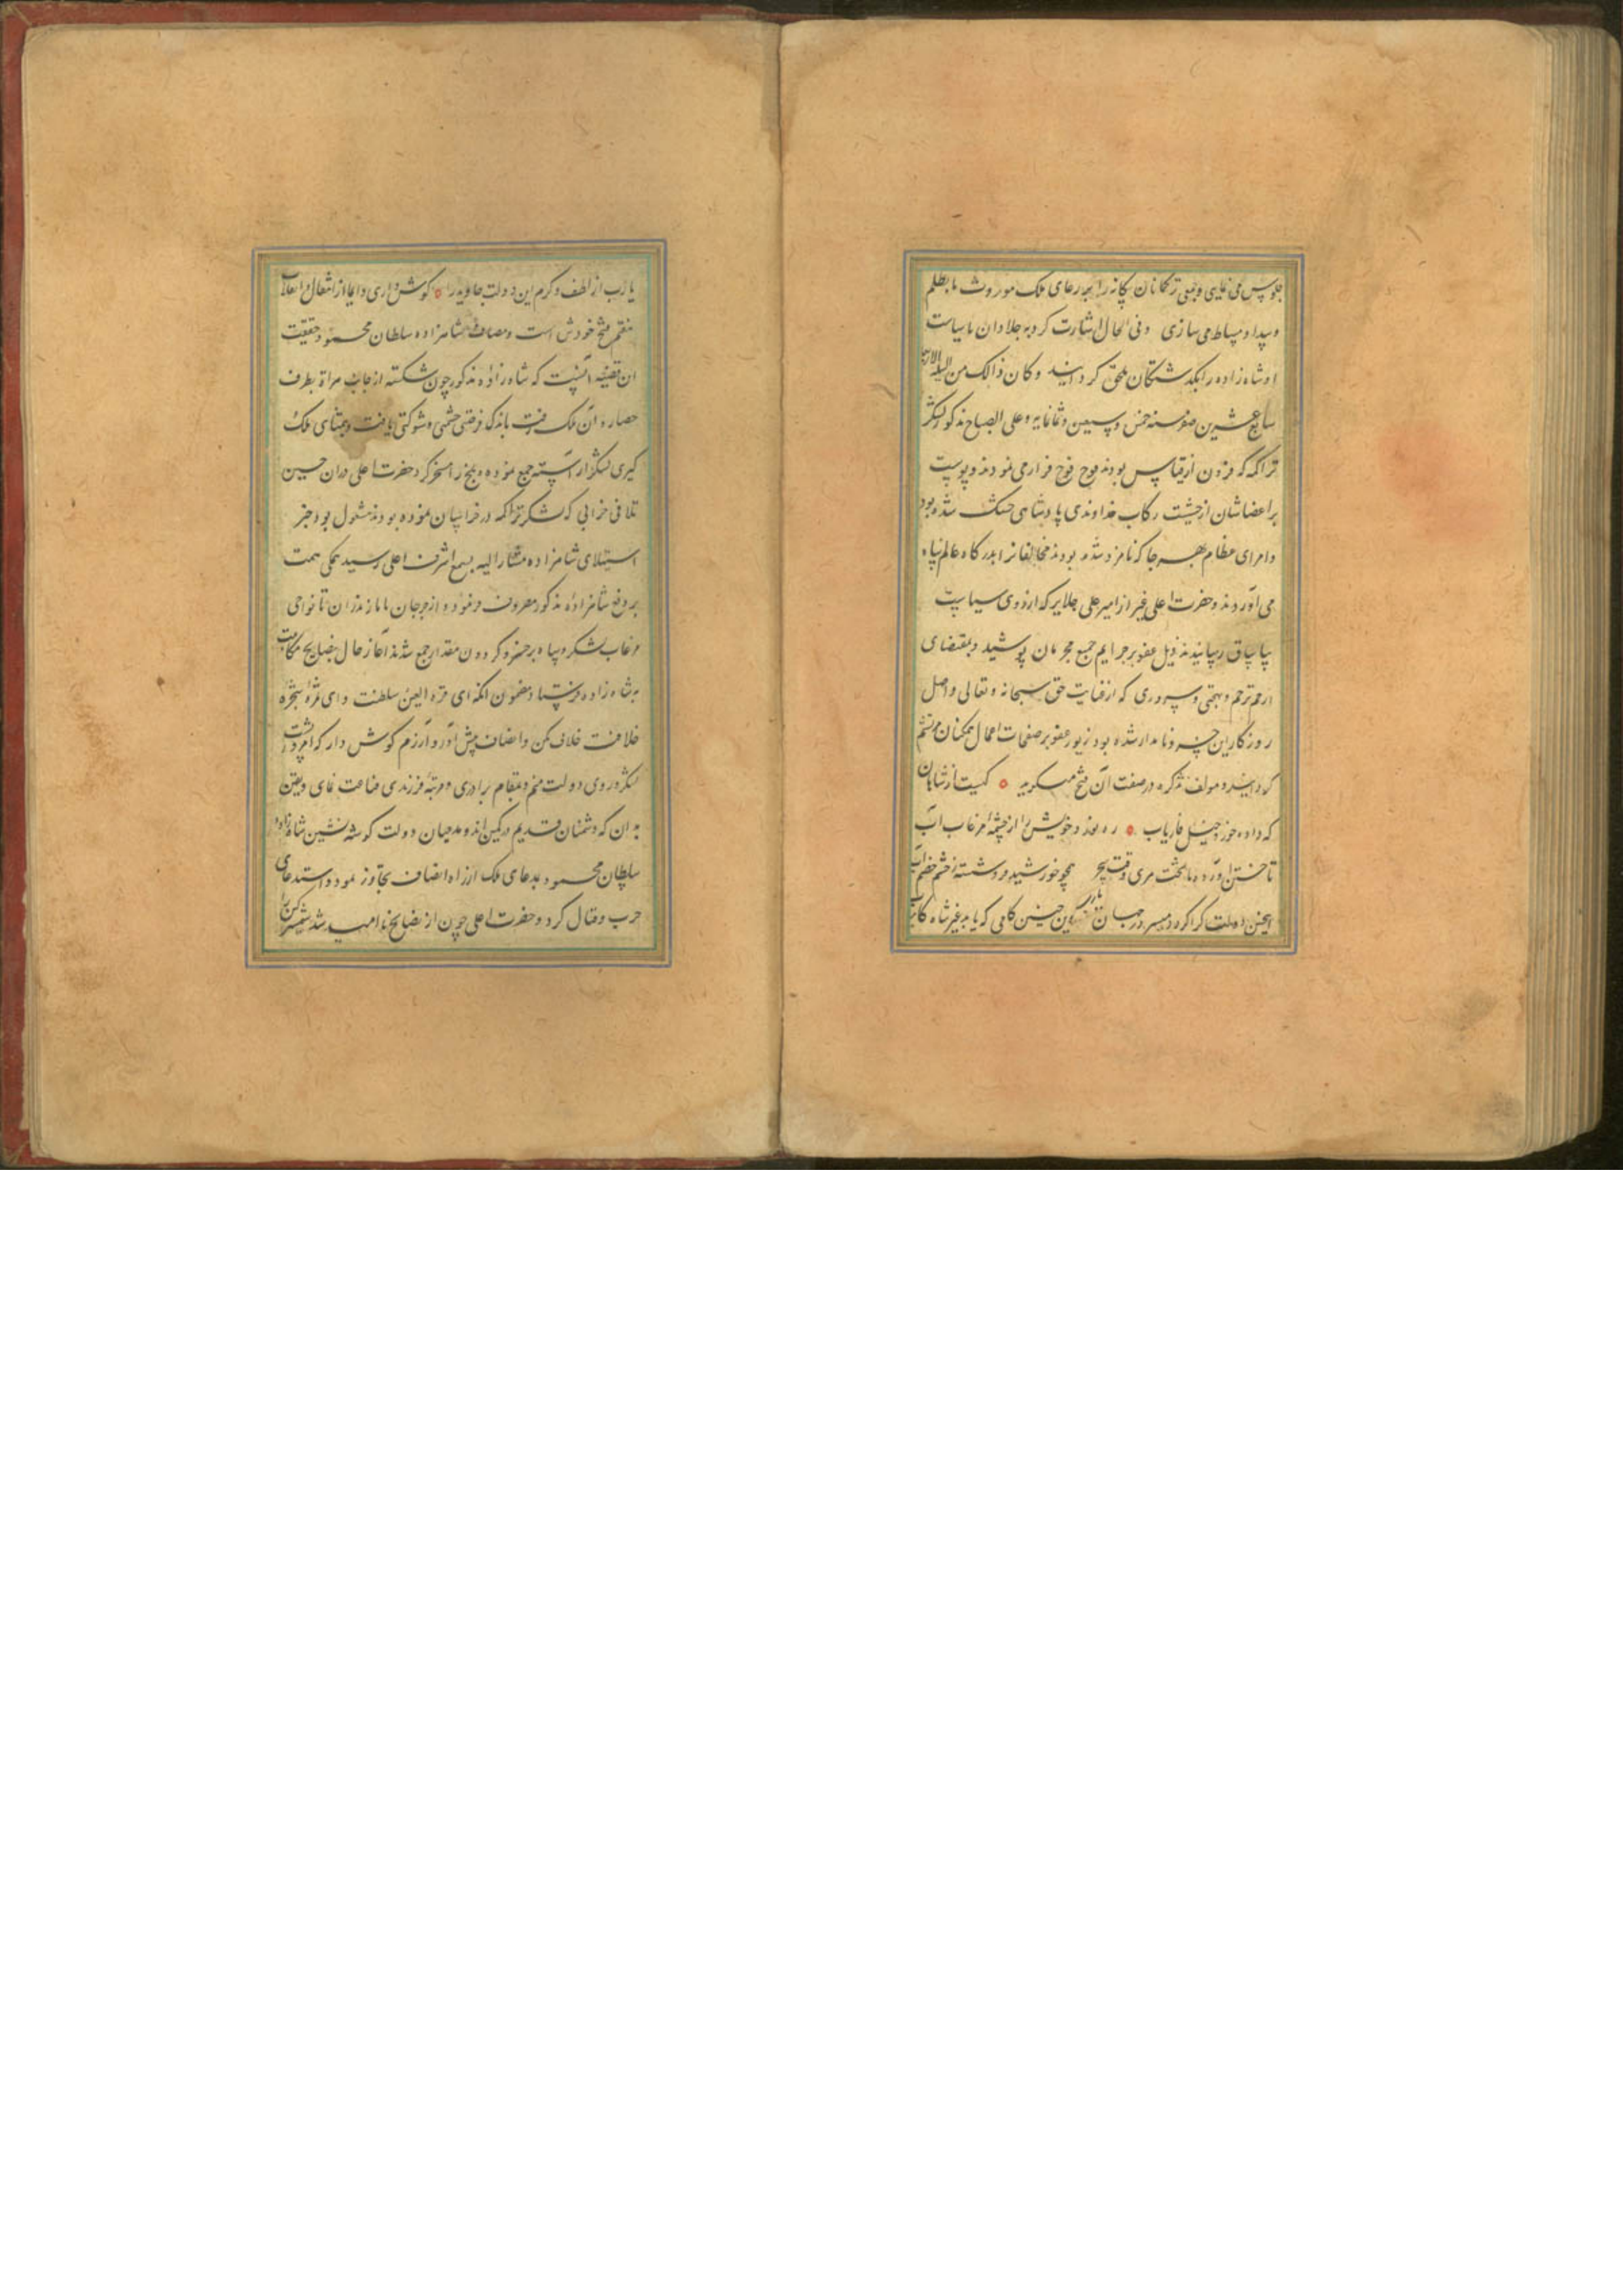 جلوس می نمایی و بعضی ترکمانان بیگانه را بجار عای ملک موروث ما بظلم
و بیداد مسلط می سازی و فی الحال اشارت کرد به جلادان با سیاست
و شاه زاده را بگذشتگان ملحق گردانیدند و کان ذالک من لیلة الاربعا
سابع عشرین صفر سنه خمس و سبعین و ثمانمایه و علی الصباح مذکور لشکر
تراکمه که فزون از قیاس بودند فوج فوج فرار می نمودند و پوست
بر اعضاشان از خشیت رکاب خداوندی پادشاهی خشک شده بود
و امرای عظام بهر جا که نامزد شده بودند مخالفانرا بدرگاه عالم پناه
می آوردند و حضرت اعلی غیر از امیر علی جلایر که از روی سیاست
بیاساق رسانیدند ذیل عفو بر جرایم جمیع مجرمان پوشید و بمقتضای
ارحم ترحم و بهجتی و سروری که از عنایت حق سبحانه و تعالی واصل
روزگار این خسرو نامدار شده بود زیور عفو بر صفحات اعمال همگنان مرتسم
گردانید و مولف تذکره در صفت آن فتح میگوید کیست از شاهان
که داده خورد خیل فاریاب ره بود و خویش را از چشمهٔ مرغاب آب
تاختن آورده تا تخت هری وقت سحر همچو خورشید و شسته ز چشم خصم آب
اینچنین دولت کرا گردد میسر در جهان این چنین کامی که یابد غیر شاه کامیاب
یا رب از لطف و کرم این دولت جاوید را گوش داری دایما از انتقال و انقلاب
هفتم فتح خودش است و مصاف شاهزاده سلطان محمود و حقیقت
این قضیه آنست که شاه زاده مذکور چون شکسته از جانب هراة بطرف
حصار و آن ملک رفت باندک فرصتی حشمتی و شوکتی یافت و بمتنای ملک
گیری لشکر آراسته جمع نموده و بلخ را مسخر کرد حضرت اعلی در ان حسین
تلافی خرابی که لشکر تراکمه در خراسان نموده بودند مشغول بود خبر
استیلای شاهزاده مشار الیه بسمع اشرف اعلی رسید همگی همت
بر دفع شاهزاده مذکور مصروف فرموده و از جرجان تا مازندران تا نواحی
مرغاب لشکر و سپاه بر حضرت گردون مقدار جمع شدند آغاز حال بنصایح مکاتبت
به شاه زاده فرستاد مضمون آنکه ای قرة العین سلطنت و ای ثمرهٔ شجرهٔ
خلافت خلاف مکن و انصاف پیش آور و آرزم گوش دار که امروز پشت
لشکر و روی دولت منم و بمقام برادری و مرتبهٔ فرزندی قناعت نمای و یقین
بدان که دشمنان قدیم در کمین اند و مدعیان دولت گوشه نشین شاه زاده
سلطان محمود بدعای ملک از راه انصاف تجاوز نمود و استدعای
حرب و قتال کرد و حضرت اعلی چون از نصایح نا امید شد شمشیر کین را